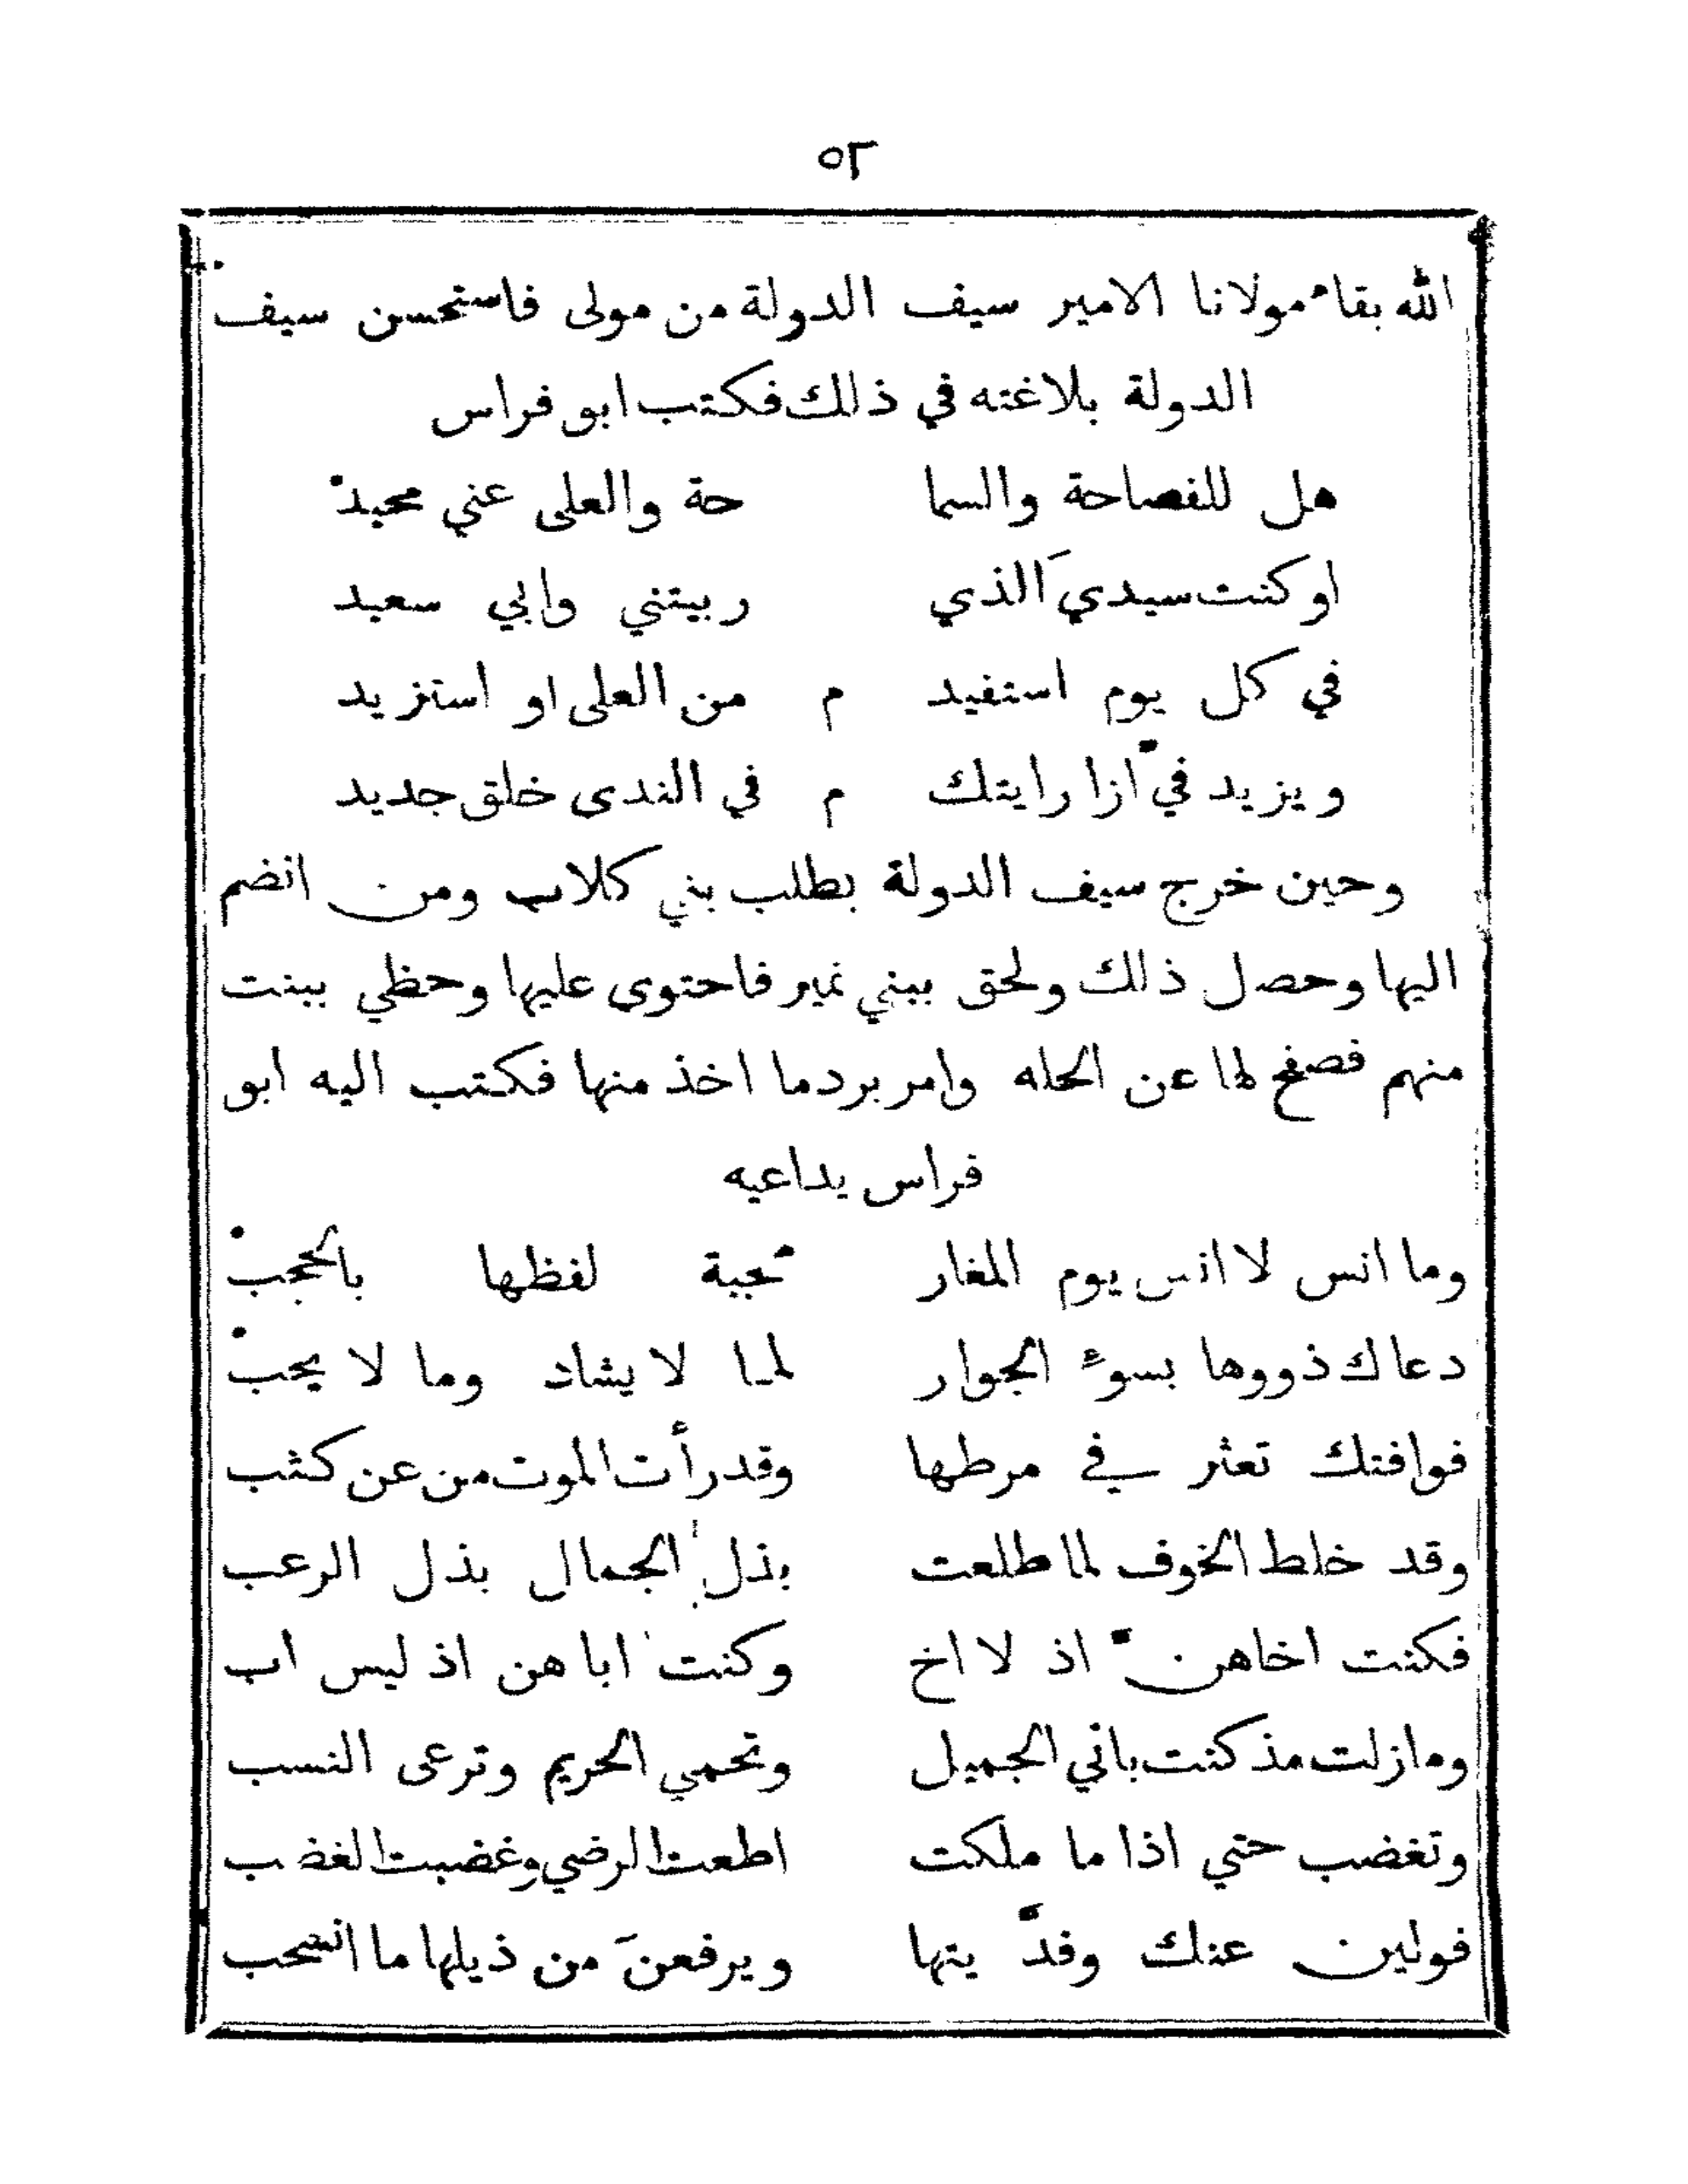 ٥٢
الله بقاء مولانا الامير سيف الدولة من مولى فاستحسن سيف
الدولة بلاغته في ذلك فكتب ابو فراس
هل للفصاحة والسما حة والعلى عني محيد
او كنت سيدي الذي ربيتني وابي سعيد
في كل يوم استفيد م من العلى او استزيد
ويزيد فيّ ازا رايتك م في الندى خلق جديد
وحين خرج سيف الدولة بطلب بني كلاب ومن انضم
اليها وحصل ذلك ولحق ببني نمير فاحتوى عليها وحظي ببنت
منهم فصفح لها عن الحله وامر برد ما اخذ منها فكتب اليه ابو
فراس يداعيه
وما انس لا انس يوم المغار محجبة لفظها بالحجب
دعاك ذووها بسوء الجوار لما لا يشاد وما لا يحب
فوافتك تعثر في مرطها وقد رأت الموت من عن كثب
وقد خلط الخوف لما طلعت بذل الجمال بذل الرعب
فكنت اخاهن اذ لا اخ وكنت ابا هن اذ ليس اب
وما زلت مذ كنت باني الجميل وتحمي الحريم وترعى النسب
وتغضب حتي اذا ما ملكت اطعت الرضي وغضبت الغضب
فولين عنك وفدّ يتها ويرفعنَ من ذيلها ما انسحب